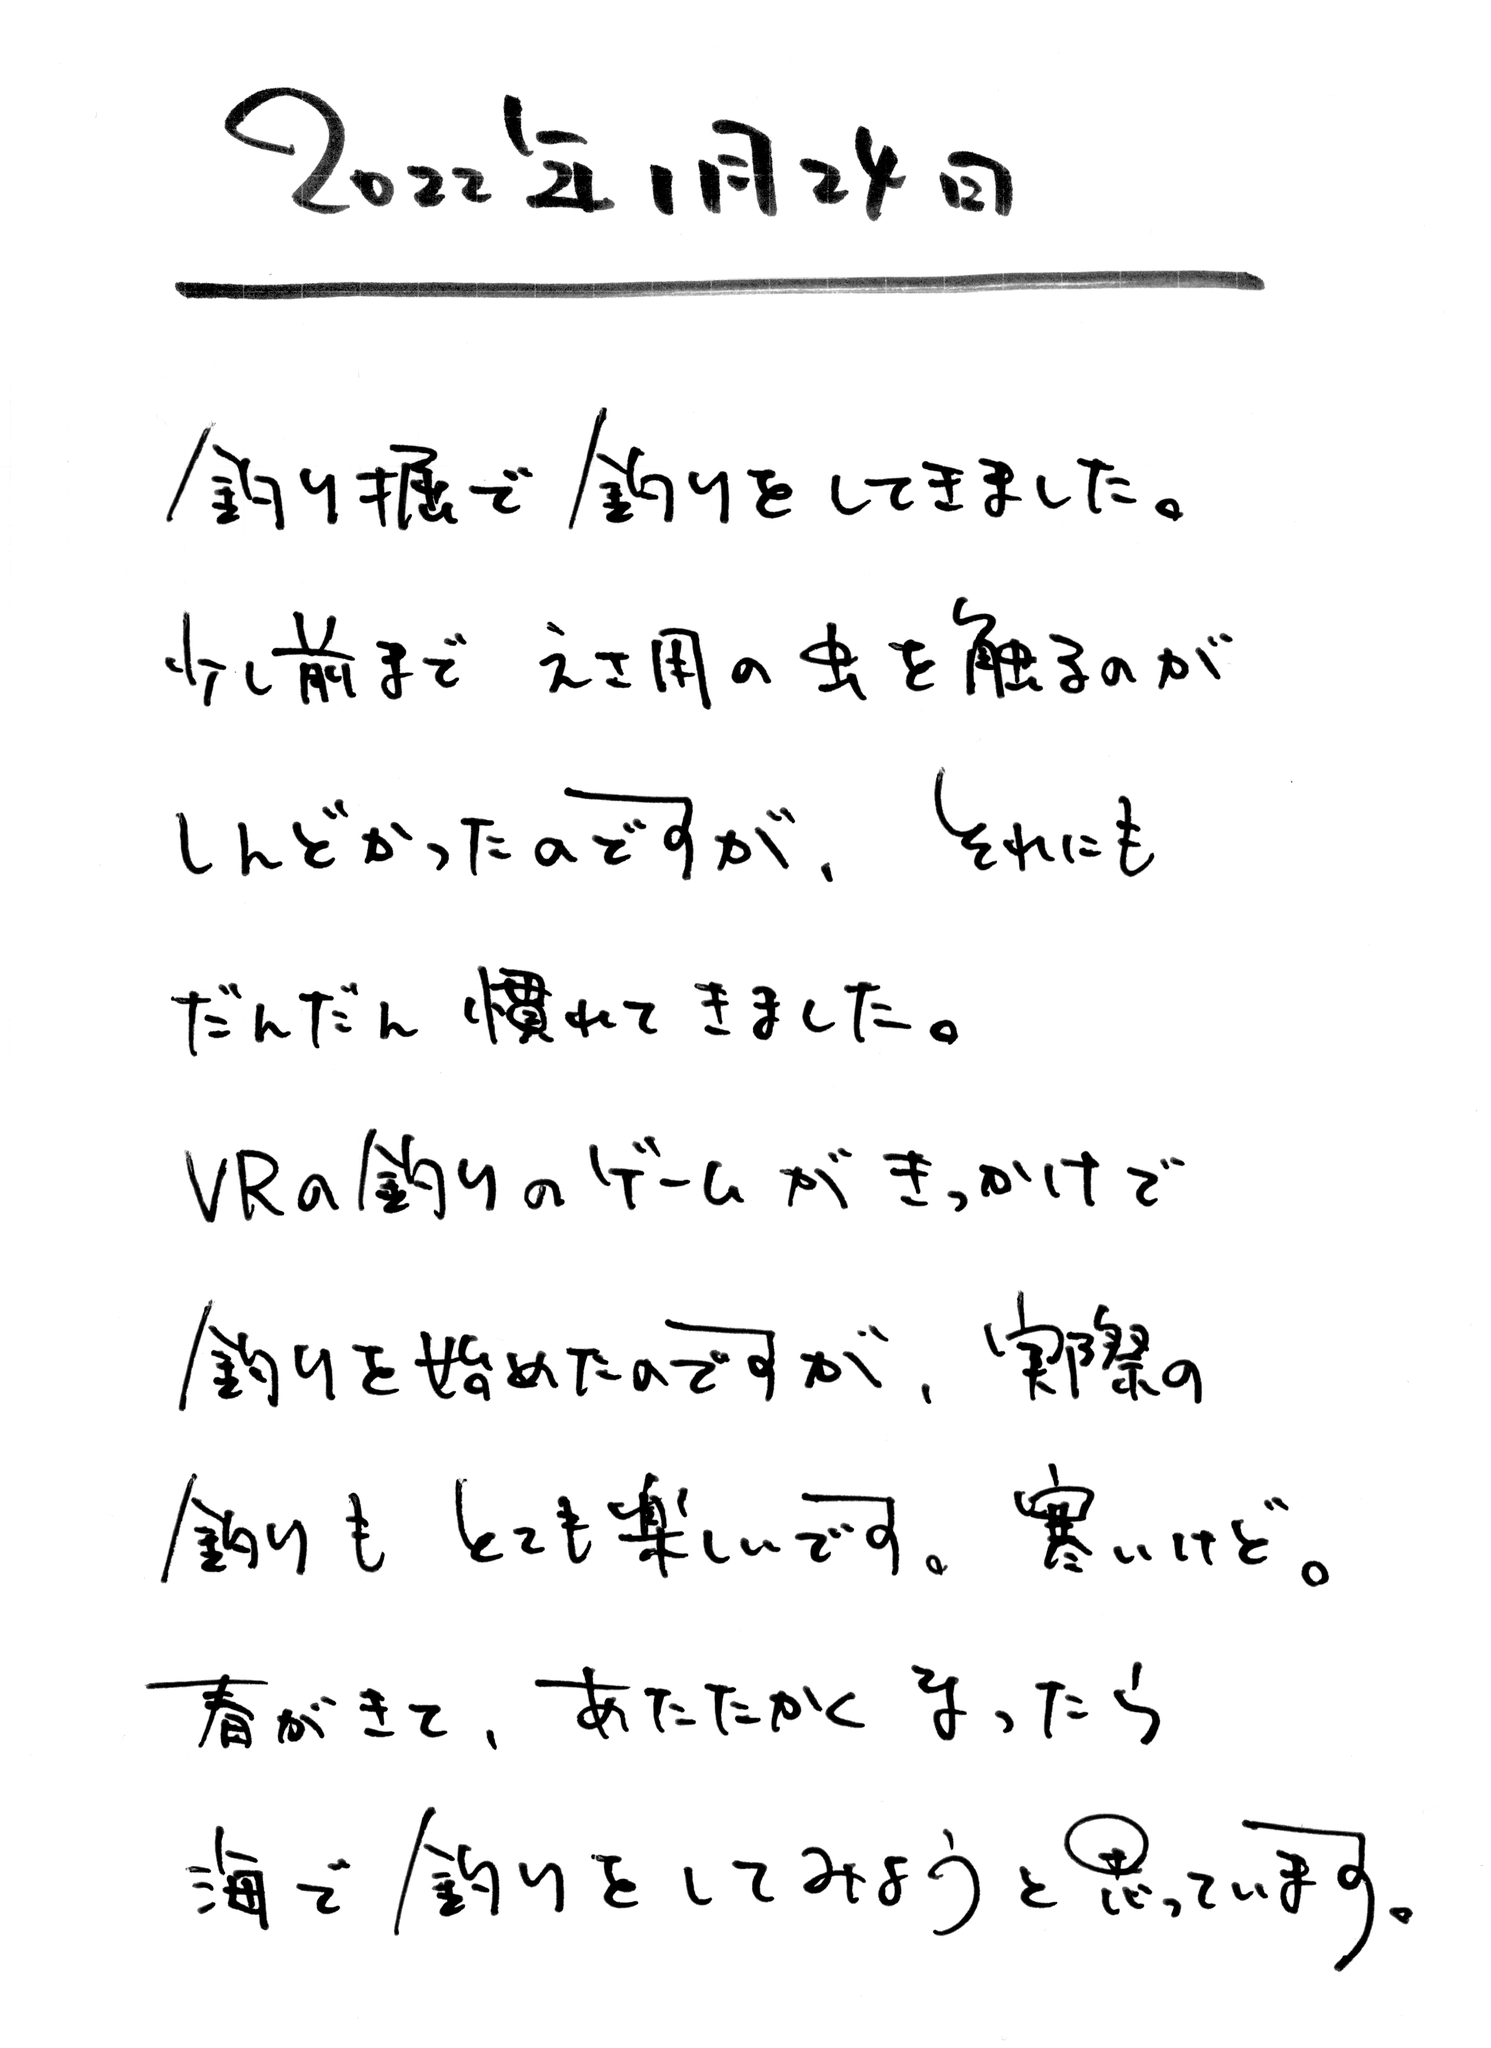 2022年1月24日
釣り掘で釣りをしてきました。
少し前まで えさ用の虫を触るのが
しんどかったのですが、それにも
だんだん慣れてきました。
VRの釣りのゲームがきっかけで
釣りを始めたのですが、実際の
釣りも とても楽しいです。寒いけど。
春がきて、あたたかくなったら
海で釣りをしてみようと思っています。